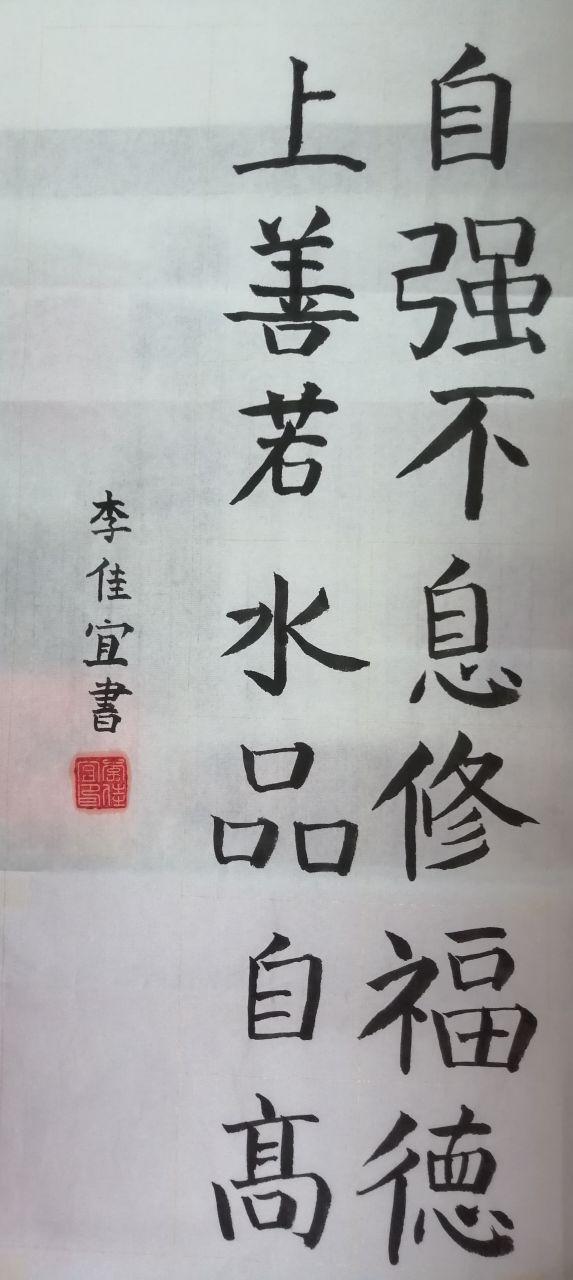 自强不息修福德
上善若水品自髙
李佳宜書